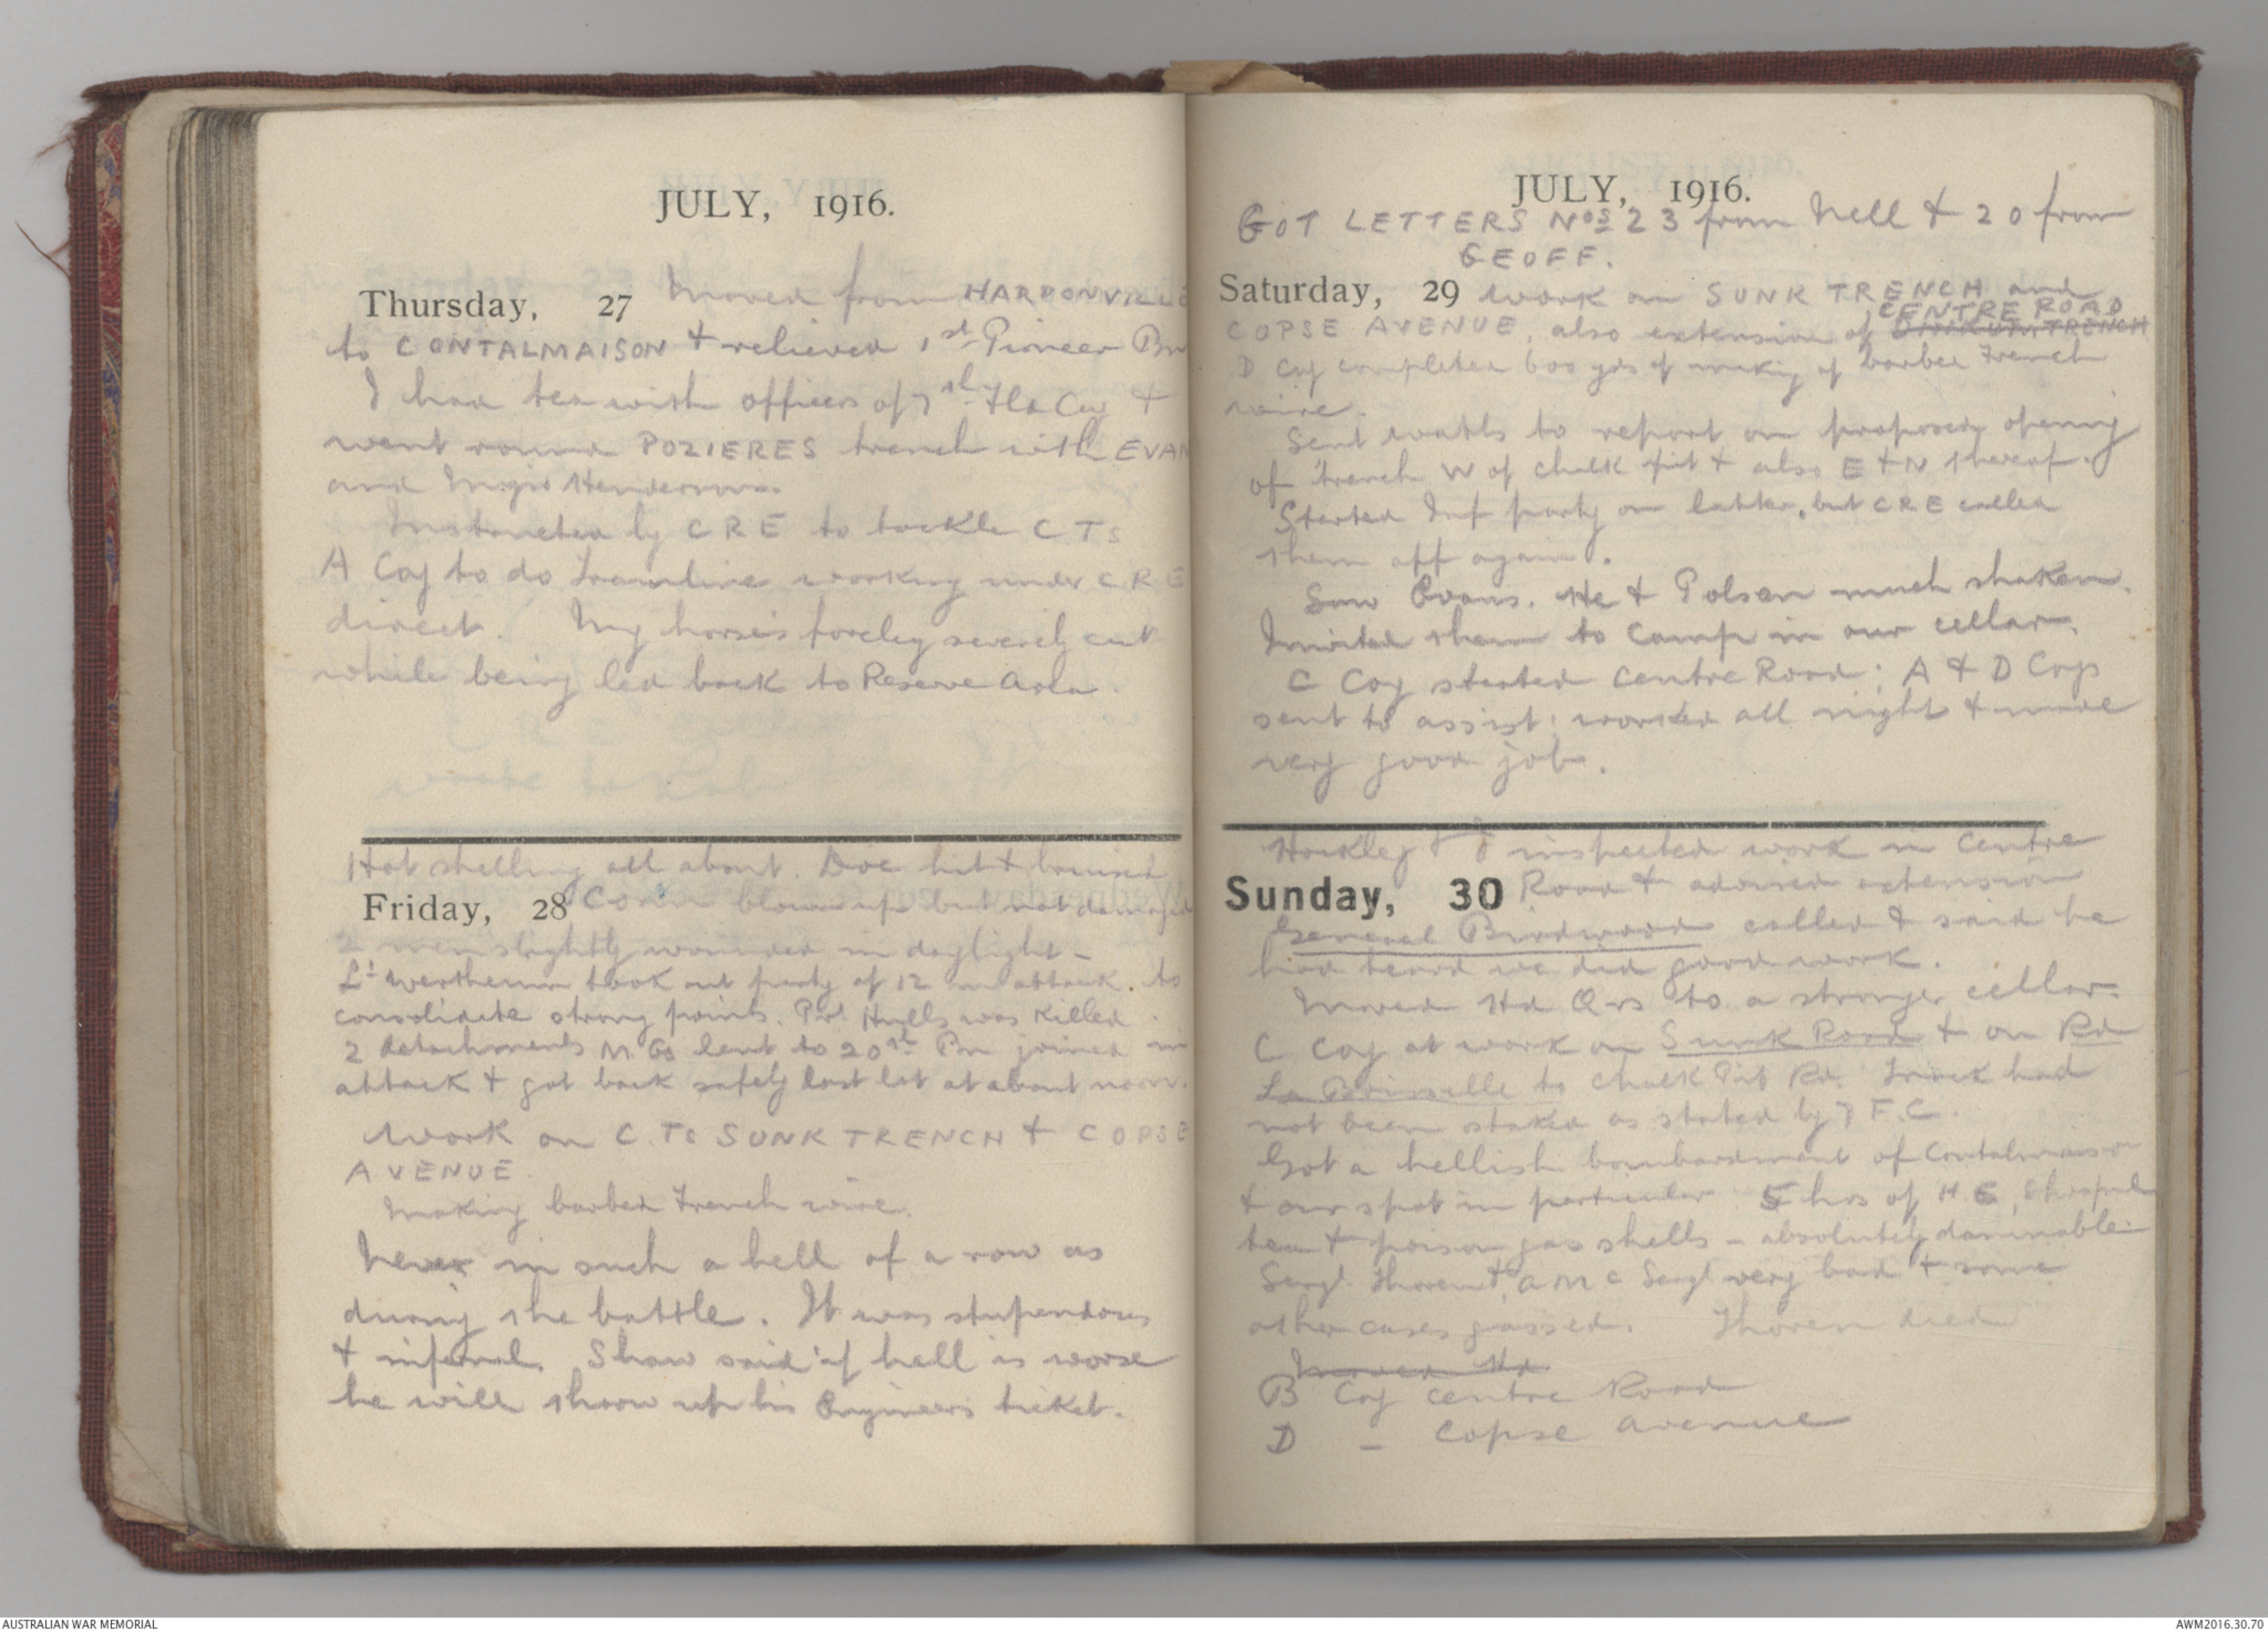 JULY, 1916.
Thursday, 27 Moved from HARPONVILLE
to CONTALMAISON + relieved 1st Pioneer Bn
I had tea with officers of 7th Fld Coy +
went round POZIERES trench with EVAN
and Major Henderson.
Instructed by CRE to tackle C Ts
A Coy to do Tramline working under C R E
direct. My horse's foreleg severely cut
while being led back to Reserve Area.
Hot shelling all about. Doe hit + bruised
Friday, 28 blown up but not damaged
2 men slightly wounded in daylight -
Lt Wertheim took out party of 12 in attack. to
consolidate strong points. Pvt Hulls was killed.
2 detachments M. Gs lent to 20th Bn joined in
attack + got back safely last lot at about noon.
Work on C. Ts SUNK TRENCH + COPSE
AVENUE.
Making barbed French wire.
Never in such a hell of a row as
during the battle. It was stupendous
+ infernal. Shaw said 'if hell is worse
he will throw up his Engineers ticket.
JULY, 1916.
GOT LETTERS Nos 23 from Nell + 20 from
GEOFF.
Saturday, 29 Work on SUNK TRENCH and
CENTRE ROAD
COPSE AVENUE, also extension of DINKUM TRENCH
D Coy completed 600 yds of making of barbed French
wire.
Sent Watts to report on proposed opening
of trench W of chalk pit + also E + N thereof.
Started Inf party on latter, but CRE called
them off again.
Saw Evans. He + Polson much shaken.
Invited them to camp in our cellar.
C Coy started Centre Road; A + D Coys
sent to assist; worked all night + made
very good job.
+ I inspected work in Centre
Sunday, 30 Road + advised extension
General Birdwood called + said he
had heard we did good work.
Moved Hd Qrs to a stronger cellar.
C Coy at work on Sunk Road + on Rd
La Boisselle to Chalk Pit Rd. Track had
not been staked as stated by 7 F.C.
Got a hellish bombardment of Contalmaison
+ our spot in particular 5 hrs of H E, Shrapnel
tear + poison gas shells - absolutely damnable.
Sergt. Thoren + AMC Sergt very bad + some
other cases gassed. Thoren died
Moved Hd
B Coy Centre Road
D - Copse Avenue
AUSTRALIAN WAR MEMORIAL
AWM2016.30.70